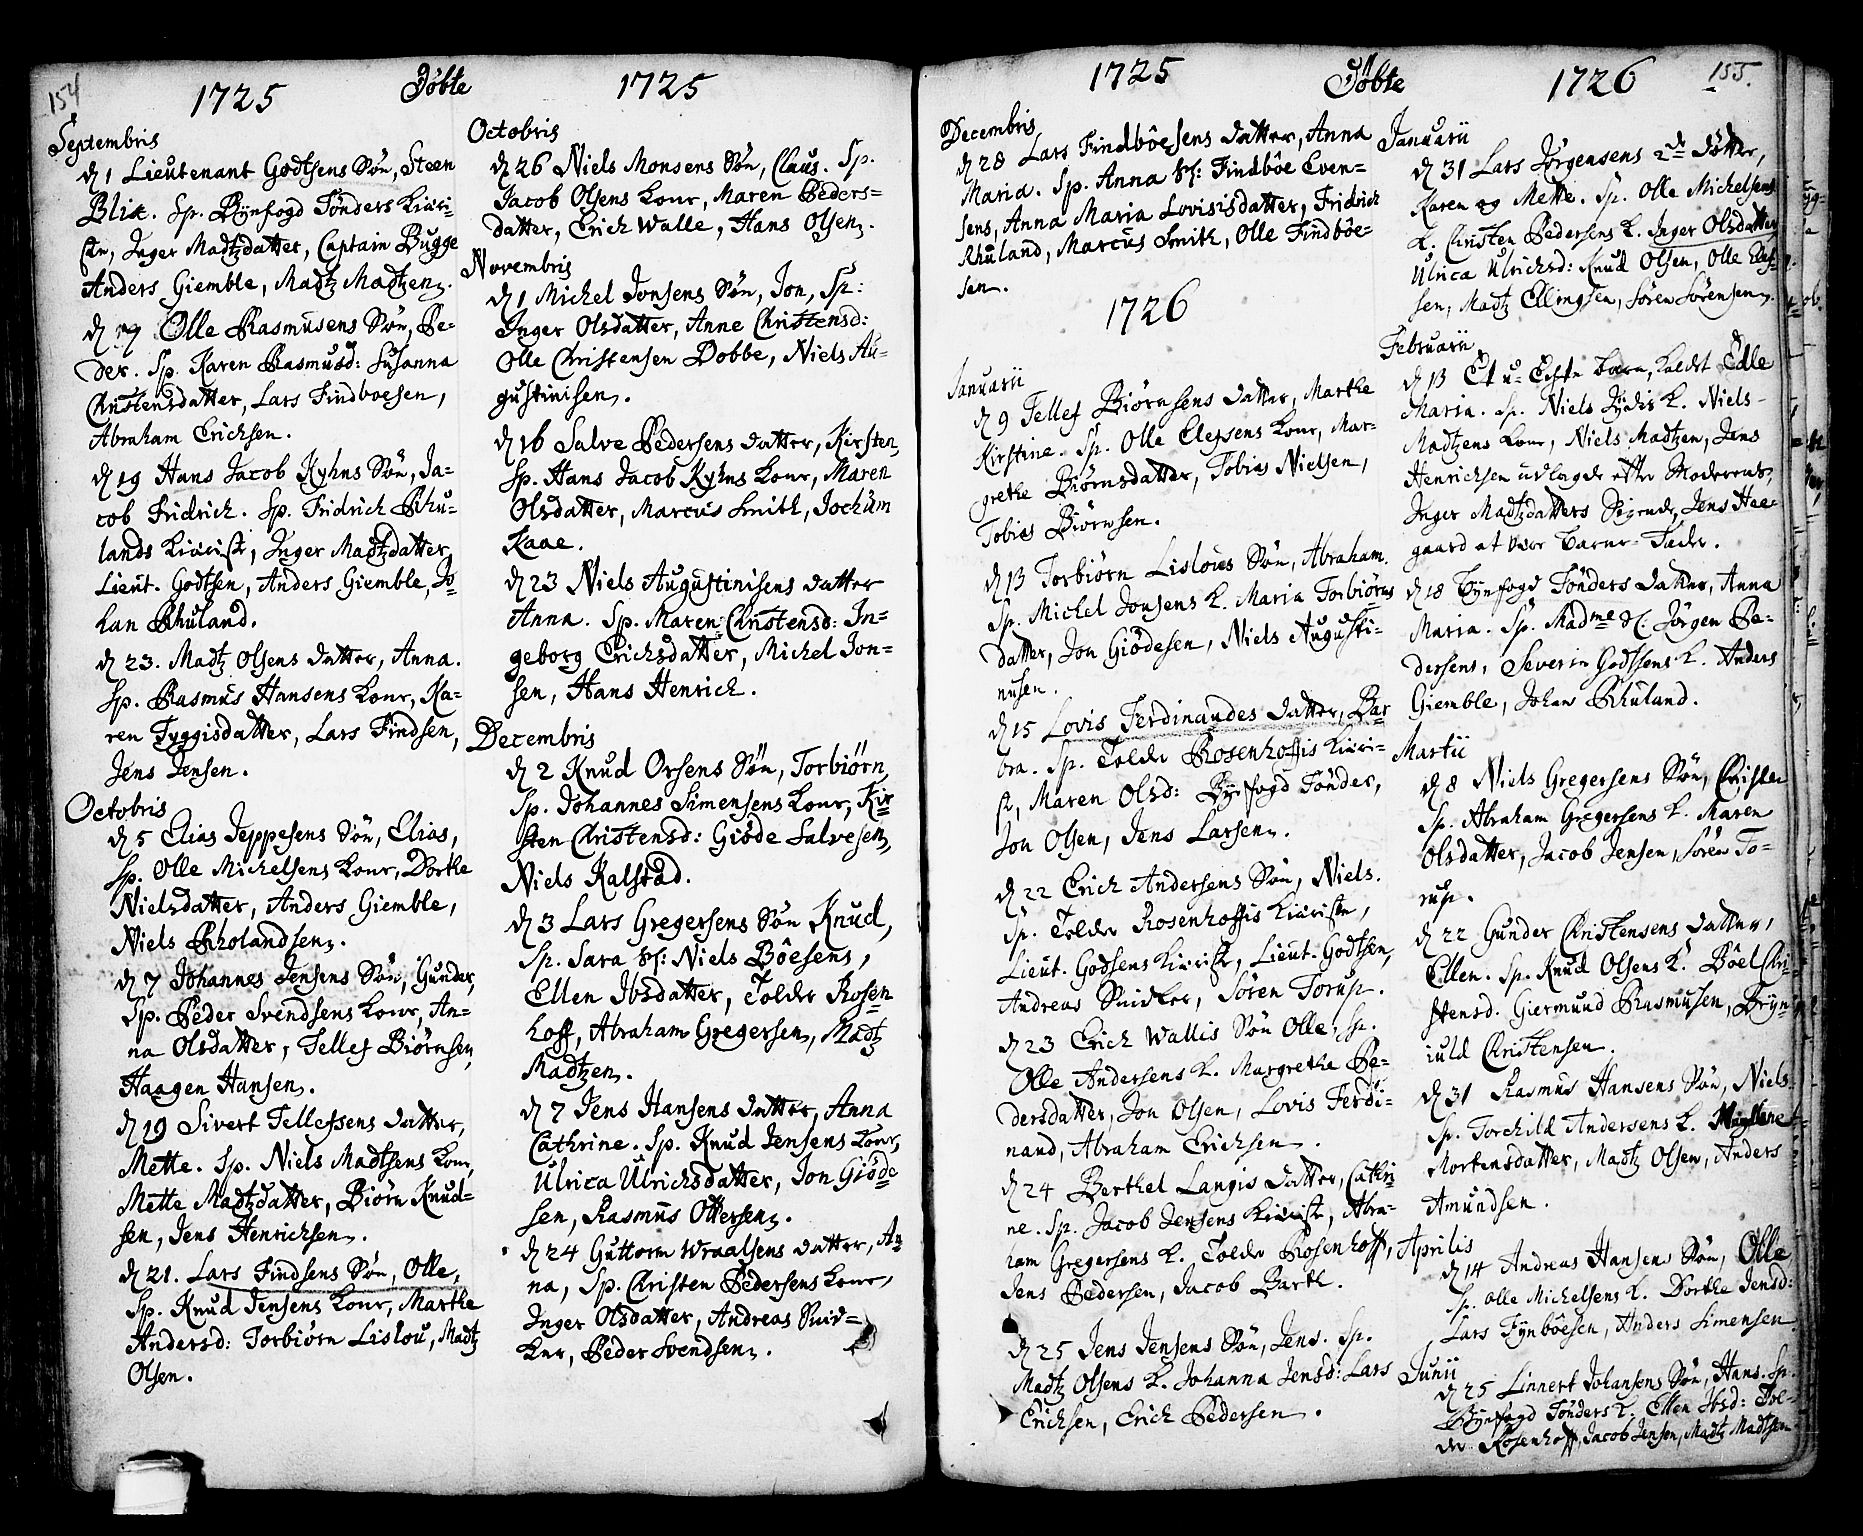 154
1725 Döbte 1725
Septembris
d 1 Lieutenant Godtsens Søn, Steen
Blix. Sp. Byefogd Tönders Kieri-
ste, Inger Madtzdatter, Captain Bugge
Anders Giemble, Madtz Madtzen.
d 17 Olle Rasmusens Søn, Pe-
der. Sp. Karen Rasmusd: Susanna
Christensdatter, Lars Findboesen,
Abraham Erichsen.
d 19 Hans Jacob Kyhns Søn, Ja-
cob Fridrich. Sp. Fridrich Rhu-
lands Kieriste, Inger Madtzdatter
Lieut. Godtsen, Anders Giemble, Jo-
han Rhuland.
d 23. Madtz Olsens datter, Anna.
Sp. Rasmus Hansens Konr, Ka-
ren Tyggisdatter, Lars Findsen,
Jens Jensen.
Octobris
d 5 Elias Jeppesens Søn, Elias,
Sp. Olle Michelsens Konr, Dorthe
Nielsdatter, Anders Giemble,
Niels Rholandsen.
d 7 Johannes Jensens Søn, Gunder,
Sp. Peder Svendsens Konr, An-
na Olsdatter, Tellef Biörnsen,
Haagen Hansen.
d 19 Sivert Tellefsens datter,
Mette. Sp. Niels Madtsens Konr,
Mette Madtzdatter, Biörn Knud-
sen, Jens Henrichsen.
d 21. Lars Findsens Søn, Olle,
Sp. Knud Jensens Konr, Marthe
Andersd: Torbiörn Lislou, Madtz
Olsen.
Octobris
d 26 Niels Monsens Søn, Claus. Sp.
Jacob Olsens Konr, Maren Peders-
datter, Erich Walle, Hans Olsen.
Novembris
d 1 Michel Jonsens Søn, Jon, Sp:
Inger Olsdatter, Anne Christensd:
Olle Christensen Dobbe, Niels Au-
gustinisen.
d 16 Salve Pedersens datter, Kirsten,
Sp. Hans Jacob Kyhns Konr, Maren
Olsdatter, Marcus Smith, Jochum
Kaae.
d 23 Niels Augustinisens datter
Anna. Sp. Maren Christensd: In-
geborg Erichsdatter, Michel Jon-
sen, Hans Henrich.
Decembris
d 2 Knud Orsens Søn, Torbiörn,
Sp. Johannes Simensens Konr, Kir-
sten Christensd: Giöde Salvesen,
Niels Kalstad.
d 3 Lars Gregersens Søn Knud,
Sp. Sara Sl: Niels Böesens,
Ellen Ibsdatter, Tolder Rosen-
hoff, Abraham Gregersen, Madtz
Madtzen.
d 7 Jens Hansens datter, Anna
Cathrine. Sp. Knud Jensens Konr,
Ulrica Ulrichsdatter, Jon Giöde-
sen, Rasmus Ottersen.
d 24 Guttorm Wraalsens datter, An-
na, Sp. Christen Pedersens Konr,
Inger Olsdatter, Andreas Snid-
ker, Peder Svendsen.
1725 Döbte 1726 155.
Decembris
d 28 Lars Findböesens datter, Anna
Maria. Sp. Anna Sl: Findböe Even-
sens, Anna Maria Lovisisdatter, Fridrich
Rhuland, Marcus Smith, Olle Findböe-
sen.
1726
Januarii
d 9 Tellef Biörnsens datter, Marthe
Kirstine. Sp. Olle Elefsens Konr, Mar-
grethe Biörnsdatter, Tobias Nielsen,
Tobias Biörnsen.
d 13 Torbiörn Lislous Søn, Abraham.
Sp. Michel Jonsens K. Maria Torbiörns
datter, Jon Giödesen, Niels Augusti-
nusen.
d 15 Lovis Ferdinandes datter, Bar-
bra. Sp. Tolder Rosenhoffis Kieri-
st, Maren Olsd: Byefogd Tönder,
Jon Olsen, Jens Larsen.
d 22 Erich Andersens Søn, Niels.
Sp. Tolder Rosenhoffis Kieriste,
Lieut. Godsens Kieriste, Lieut. Godtsen,
Andreas Snidker, Sören Torup.
d 23 Erich Wallis Søn Olle, Sp.
Olle Andersens K. Margrethe Pe-
dersdatter, Jon Olsen, Lovis Ferdi-
nand, Abraham Erichsen.
d 24 Berthel Langis datter, Cathri-
ne. Sp. Jacob Jensens Kieriste, Abra-
ham Gregersens K. Tolder Rosenhoff,
Jens Pedersen, Jacob Barth.
d 25 Jens Jensens Søn, Jens. Sp.
Madtz Olsens K. Johanna Jensd: Lars
Erichsen, Erich Pedersen.
Januarii
d 31 Lars Jörgensens 2de Døtter,
Karen og Mette. Sp. Olle Michelsens
K. Christen Pedersens K. Inger Olsdatter
Ulrica Ulrichsd: Knud Olsen, Olle Elef-
sen, Madtz Ellingsen, Sören Sörensen.
Februarii
d 13 Et u-Egte barn, kaldet Edle
Maria. Sp. Niels Jydes K. Niels
Madtzens Konr, Niels Madtzen, Jens
Henrichsen udlagde efter Moderens,
Inger Madtzdatters Sigende, Jens Hee-
gaard at være Barne-Fader.
d 18 Byefogd Tönders datter, Anna
Maria. Sp. Madme Sl. Jörgen Pe-
dersens, Severin Godtsens K. Anders
Giemble, Johan Rhuland.
Martii
d 8 Niels Gregersens Søn, Christen
Sp. Abraham Gregersens K. Maren
Olsdatter, Jacob Jensen, Sören To-
rup.
d 22 Gunder Christensens datter,
Ellen. Sp. Knud Olsens K. Böel Chri-
stensd. Giermund Rasmusen, Bryn-
iuld Christensen.
d 31 Rasmus Hansens Søn, Niels.
Sp. Torchild Andersens K.
Mortensdatter, Madtz Olsen, Anders
Amundsen.
Aprilis
d 14 Andreas Hansens Søn, Olle
Sp. Olle Michelsens K. Dorthe Jensd:
Lars Fynböesen, Anders Simensen
Junii
d 25 Linnert Johansens Søn, Hans. Sp.
Byefogd Tönders K. Ellen Ibsd: Tol-
der Rosenhoff, Jacob Jensen, Madtz Madtsen